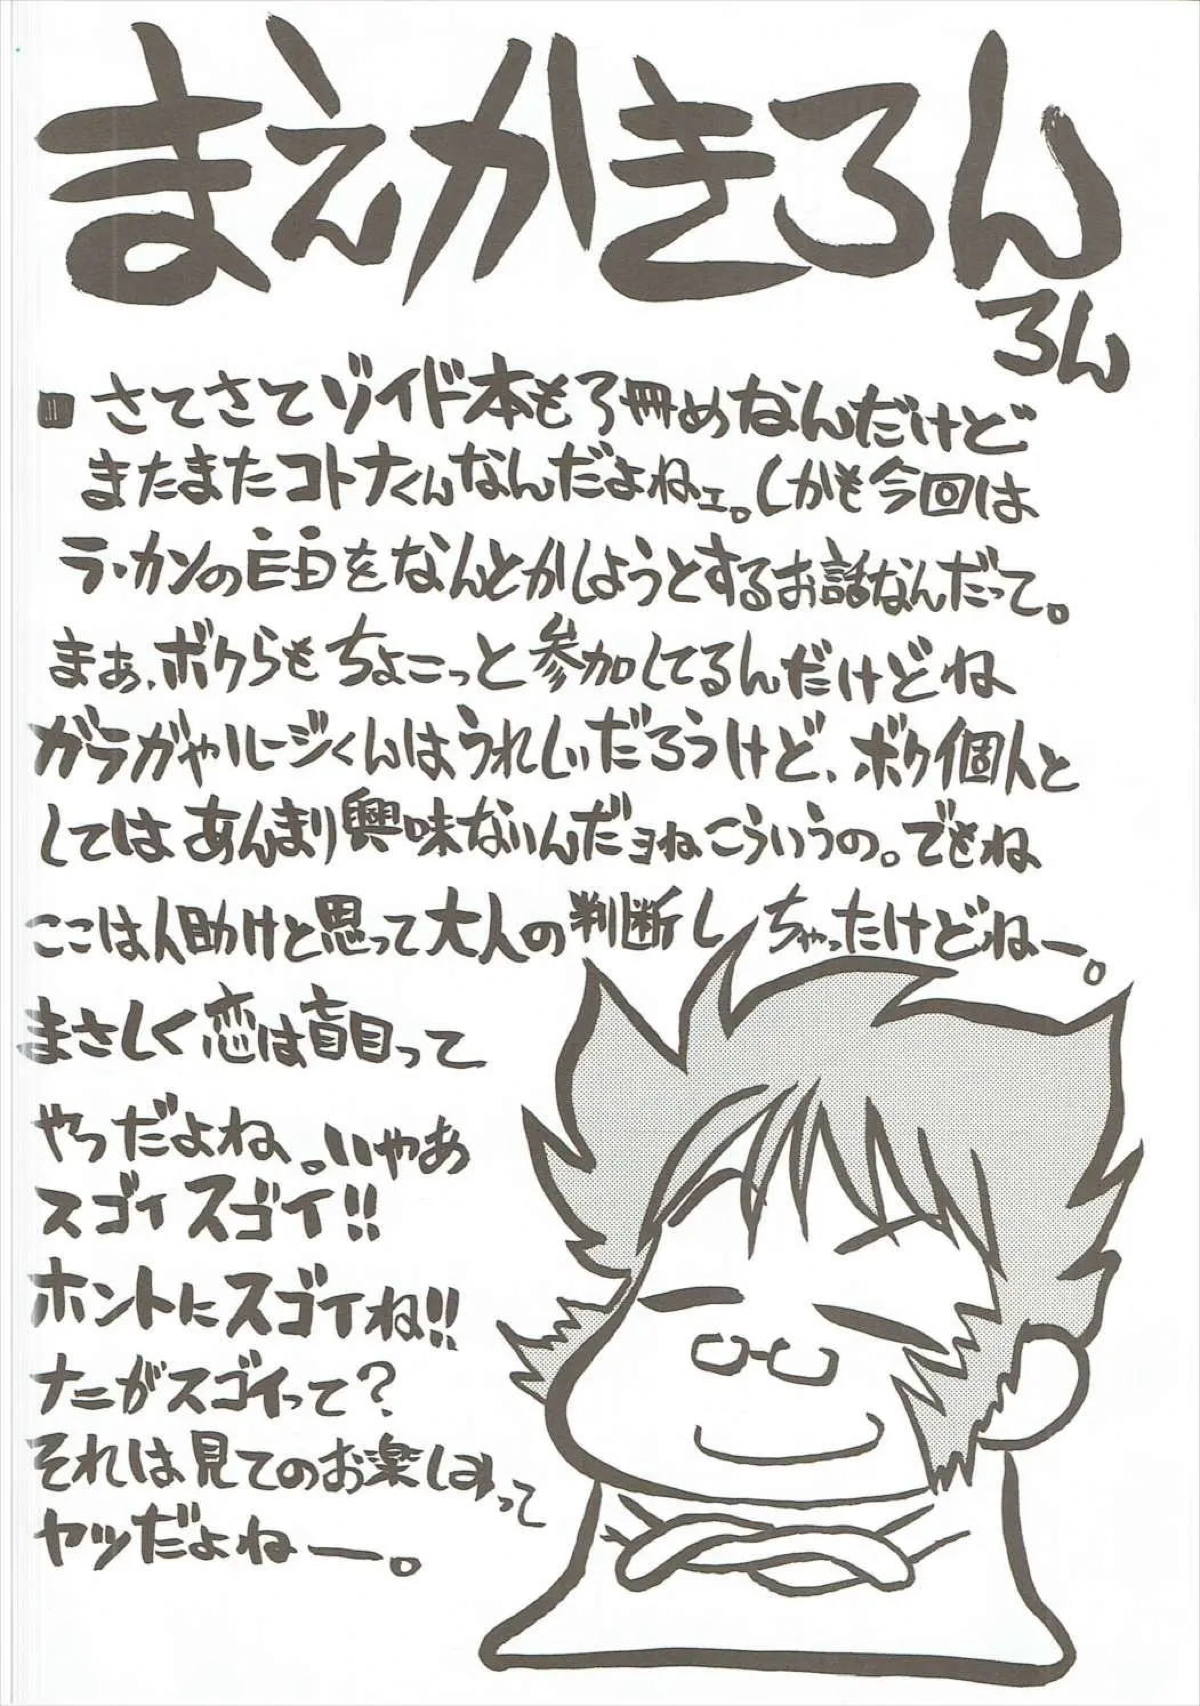 まえかきろん
ろん
さてさてゾイド本も3冊めなんだけど
またまたコトナくんなんだよねェ。しかも今回は
ラ・カンの をなんとかしようとするお話なんだって。
まぁ、ボクらもちょこっと参加してるんだけどね
ガラガやルージくんはうれしいだろうけど、ボク個人と
してはあんまり興味ないんだヨねこういうの。でもね
ここは人助けと思って大人の判断しちゃったけどねー。
まさしく恋は盲目って
やつだよね。いやあ
スゴイスゴイ!!
ホントにスゴイね!!
ナニがスゴイって?
それは見てのお楽しみって
ヤツだよねー。